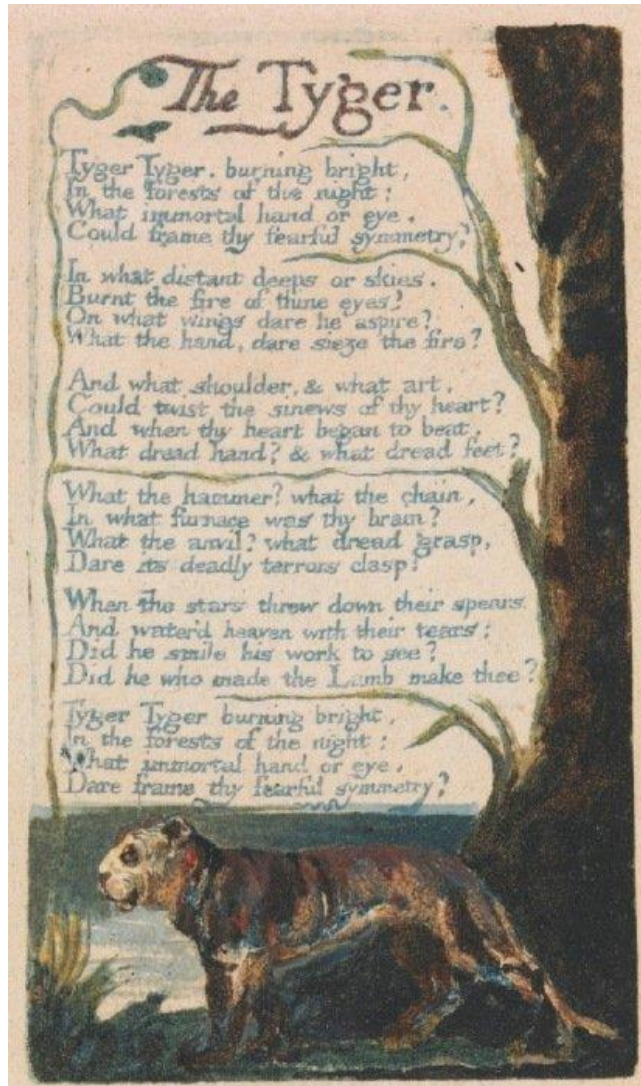 The Tyger.
Tyger Tyger. burning bright,
In the forests of the night :
What immortal hand or eye.
Could frame thy fearful symmetry?
In what distant deeps or skies.
Burnt the fire of thine eyes?
On what wings dare he aspire?
What the hand, dare sieze the fire?
And what shoulder, & what art,
Could twist the sinews of thy heart?
And when thy heart began to beat,
What dread hand? & what dread feet?
What the hammer? what the chain,
In what furnace was thy brain?
What the anvil? what dread grasp,
Dare its deadly terrors clasp?
When the stars threw down their spears
And water'd heaven with their tears :
Did he smile his work to see?
Did he who made the Lamb make thee?
Tyger Tyger burning bright,
In the forests of the night :
What immortal hand or eye,
Dare frame thy fearful symmetry?